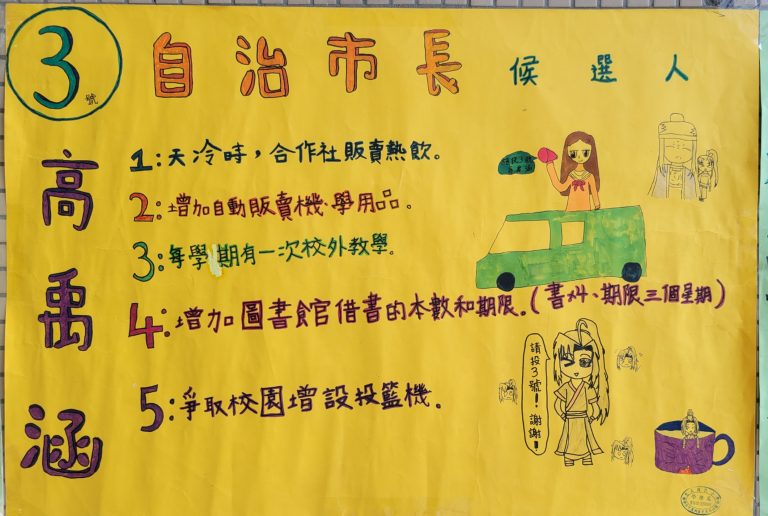 3號
自治市長 候選人
高禹涵
1:天冷時,合作社販賣熱飲。
2:增加自動販賣機、學用品。
3:每學期有一次校外教學。
4:增加圖書館借書的本數和期限。(書x4、期限三個星期)
5:爭取校園增設投籃機.
請投3號
請投3號!謝謝!